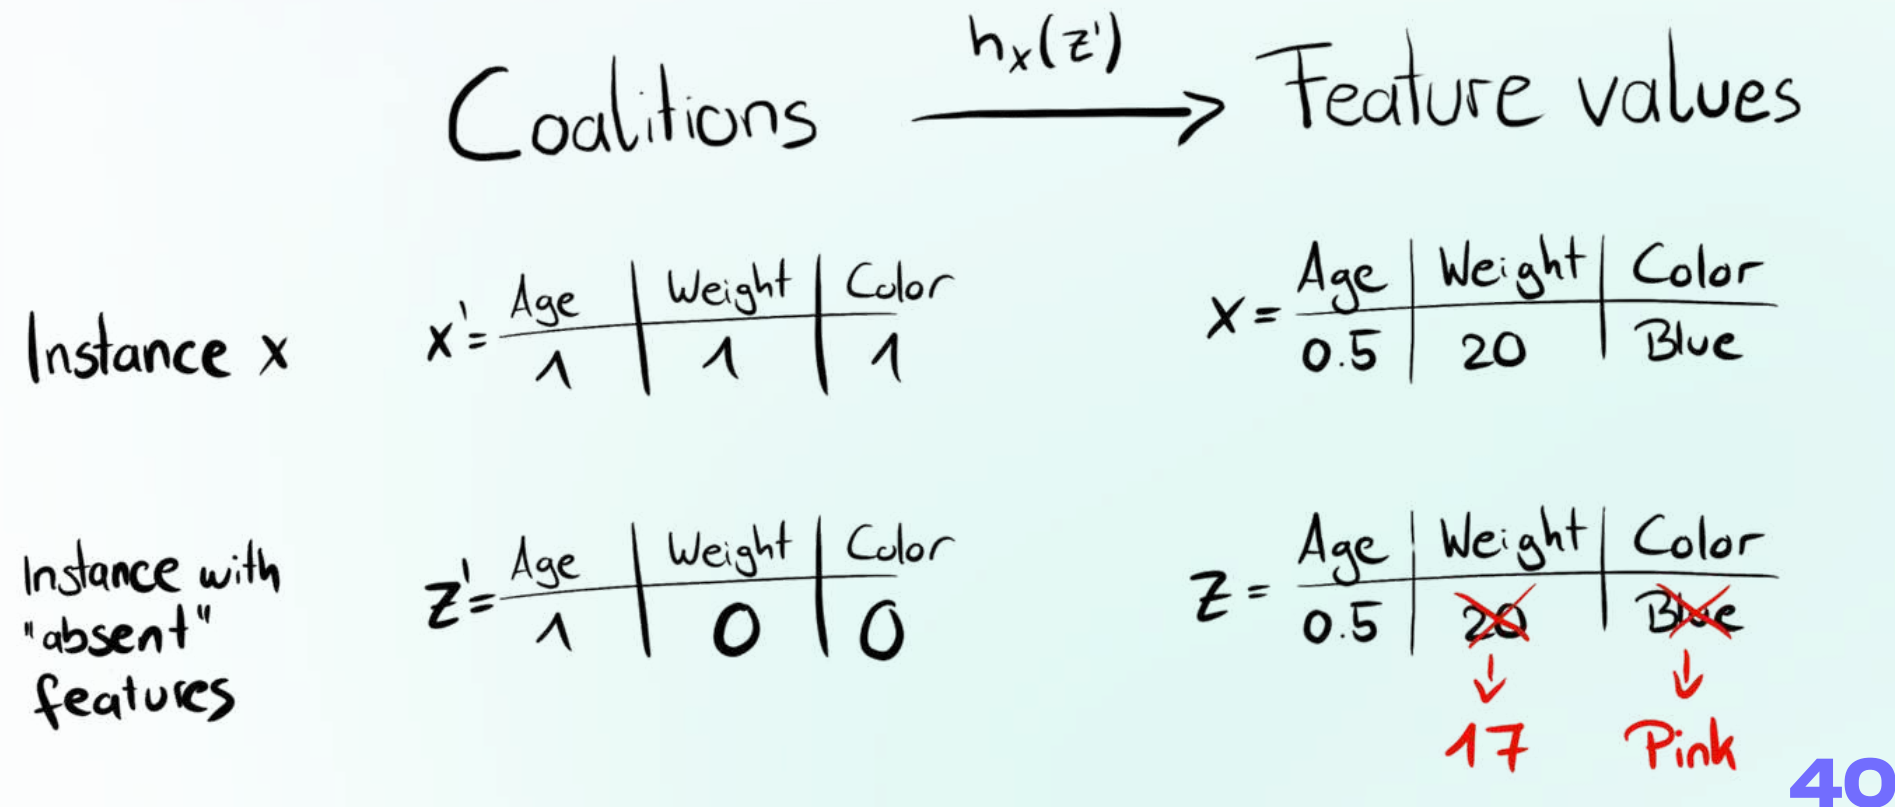 Coalitions hx(z') Feature values
Instance x
x' =
Age Weight Color
1 1 1
x =
Age Weight Color
0.5 20 Blue
Instance with
"absent"
features
z' =
Age Weight Color
1 0 0
z =
Age Weight Color
0.5 20 Blue
17 Pink
40